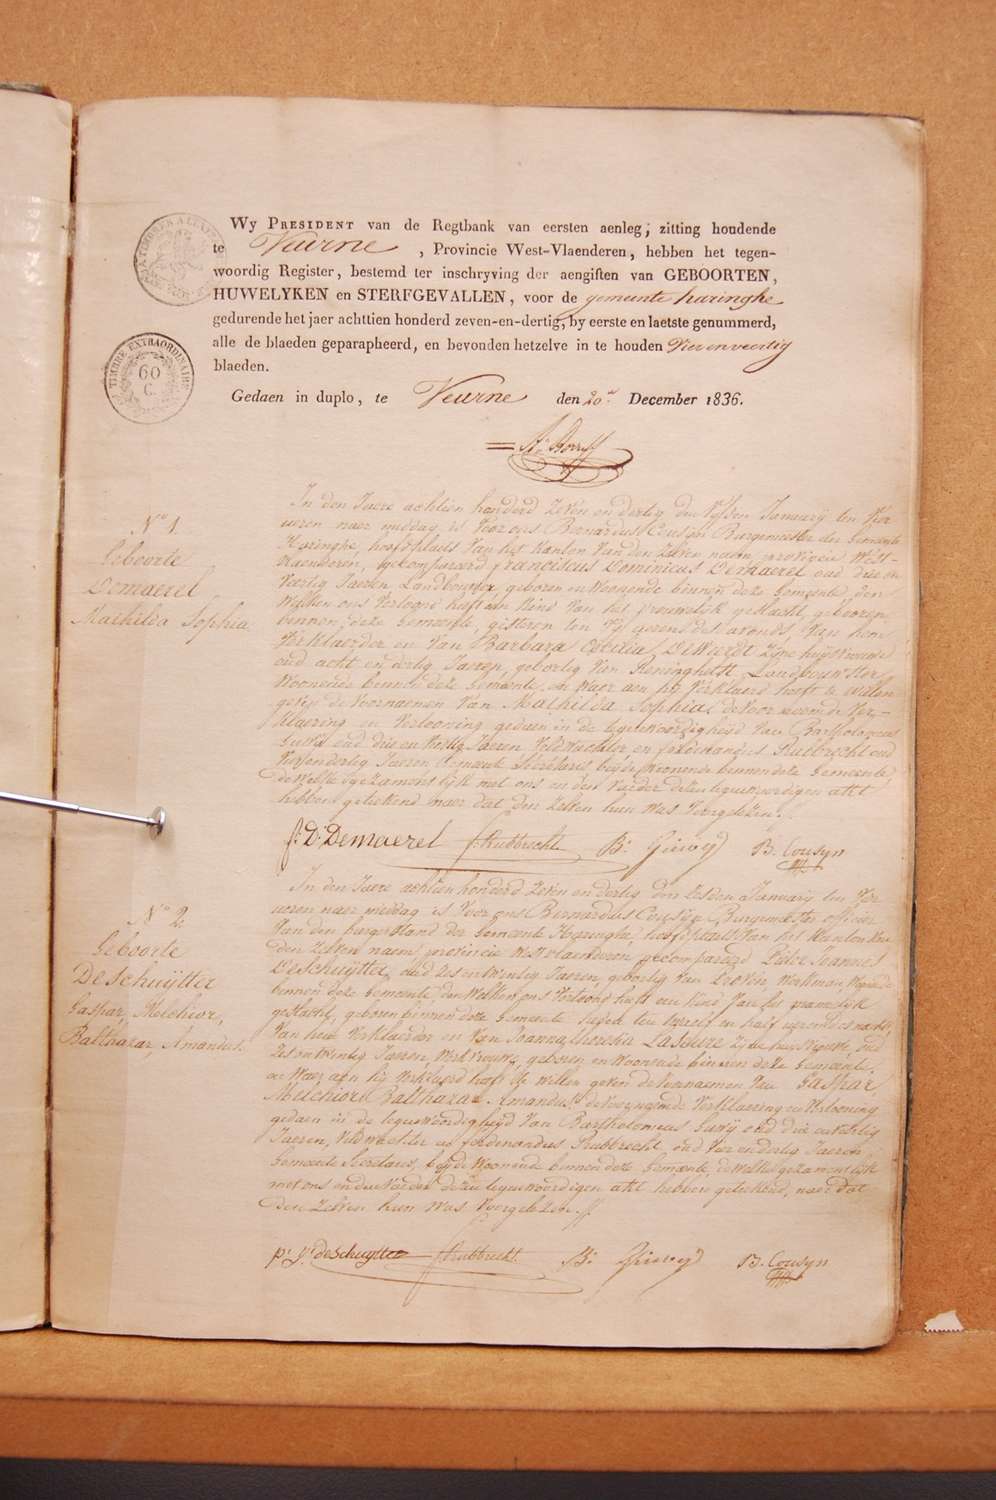 Wy PRESIDENT van de Regtbank van eersten aenleg, zitting houdende
te Veurne, Provincie West-Vlaenderen, hebben het tegen-
woordig Register, bestemd ter inschryving der aengiften van GEBOORTEN,
HUWELYKEN en STERFGEVALLEN, voor de gemeente haringhe
gedurende het jaer achttien honderd zeven-en-dertig, by eerste en laetste genummerd,
alle de blaeden geparapheerd, en bevonden hetzelve in te houden Vier en veertig
blaeden.
Gedaen in duplo, te Veurne den 20 December 1836.
TIMBRE EXTRAORDINAIRE
60
C.
No 1
Geboorte
Demaerel
Mathilda Sophia
In den Jaere achtien honderd zeven en dertig den Vyfden January ten Vier
ueren naer middag, is Voor ons Bernardus Cousyn Burgemeester der Gemeente
Haringhe, hoofdplaets Van het Kanton Van den Zelven naem, provincie West-
vlaenderen, gekompareerd franciscus Dominicus Demaerel oud drie en
Veertig Jaeren, Landbouwer, geboren en Woonende binnen deze Gemeente, den
Welken ons Vertoont heeft een kind Van het Vrouwelyk geslacht, geboren
binnen deze Gemeente, gisteren ten Vyf ueren des avonds, Van hem
Verklaerder en Van Barbara Cecilia Dewaede Zyne huysvrouwe
oud acht en dertig Jaeren, geboortig Van Reninghelst, Landbouwster
Woonende binnen deze Gemeente, en Waer aen hy Verklaerd heeft te willen
geven de Voornaemen Van Mathilda Sophia, de Voornoemde Ver-
klaering en Vertooning gedaen in de tegenwoordigheyd Van Bartholomeus
oud drie en Veertig Jaeren, Veldwachter en ferdinandus Rubbrecht oud
Vier en dertig Jaeren Gemeente Secretaris beyde Woonende binnen deze Gemeente
de Welke gezamentlyk met ons en den Vaeder dezen tegenwoordigen akt
hebben geteekend naer dat den Zelven hun Was Voorgelezen.
f. D. Demaerel f. Rubbrecht B. B. Cousyn
No 2
Geboorte
DeSchuÿtter
Gaspar, Melchior,
Balthazar, Amandus.
In den Jaere achtien honderd Zeven en dertig den Zesden January ten Vier
ueren naer middag is Voor ons Bernardus Cousyn Burgemeester officier
Van den burgerstand der Gemeente Haringhe, hoofdplaets Van het Kanton Van
den Zelven naem, provincie Westvlaenderen gecompareerd Pieter Joannes
DeSchuÿtter, oud Zes en twintig Jaeren, geboortig Van Proven, Werkman Woonende
binnen deze Gemeente, den Welken ons Vertoont heeft een kind Van het manelyk
geslacht, geboren binnen deze Gemeente heden ten twaelf en half ueren des nachts,
Van hem Verklaerder en Van Joanna Theresia Lasoere Zyne huysvrouwe, oud
Zes en twintig Jaeren, Werkvrouwe, geboren en Woonende binnen deze Gemeente,
en Waer aen hy Verklaerd heeft te willen geven de Voornaemen Van Gaspar,
Melchior Balthazar Amandus, de Voornoemde Verklaering en Vertooning
gedaen in de tegenwoordigheyd Van Bartholomeus oud drie en Veertig
Jaeren, Veldwachter en ferdinandus Rubbrecht oud Vier en dertig Jaeren
Gemeente Secretaris, beyde Woonende binnen deze Gemeente, de Welke gezamentlyk
met ons en den Vaeder dezen tegenwoordigen akt hebben geteekend, naer dat
den Zelven hun Was Voorgelezen.
p. J. deschuytter f. Rubbrecht B. B. Cousyn